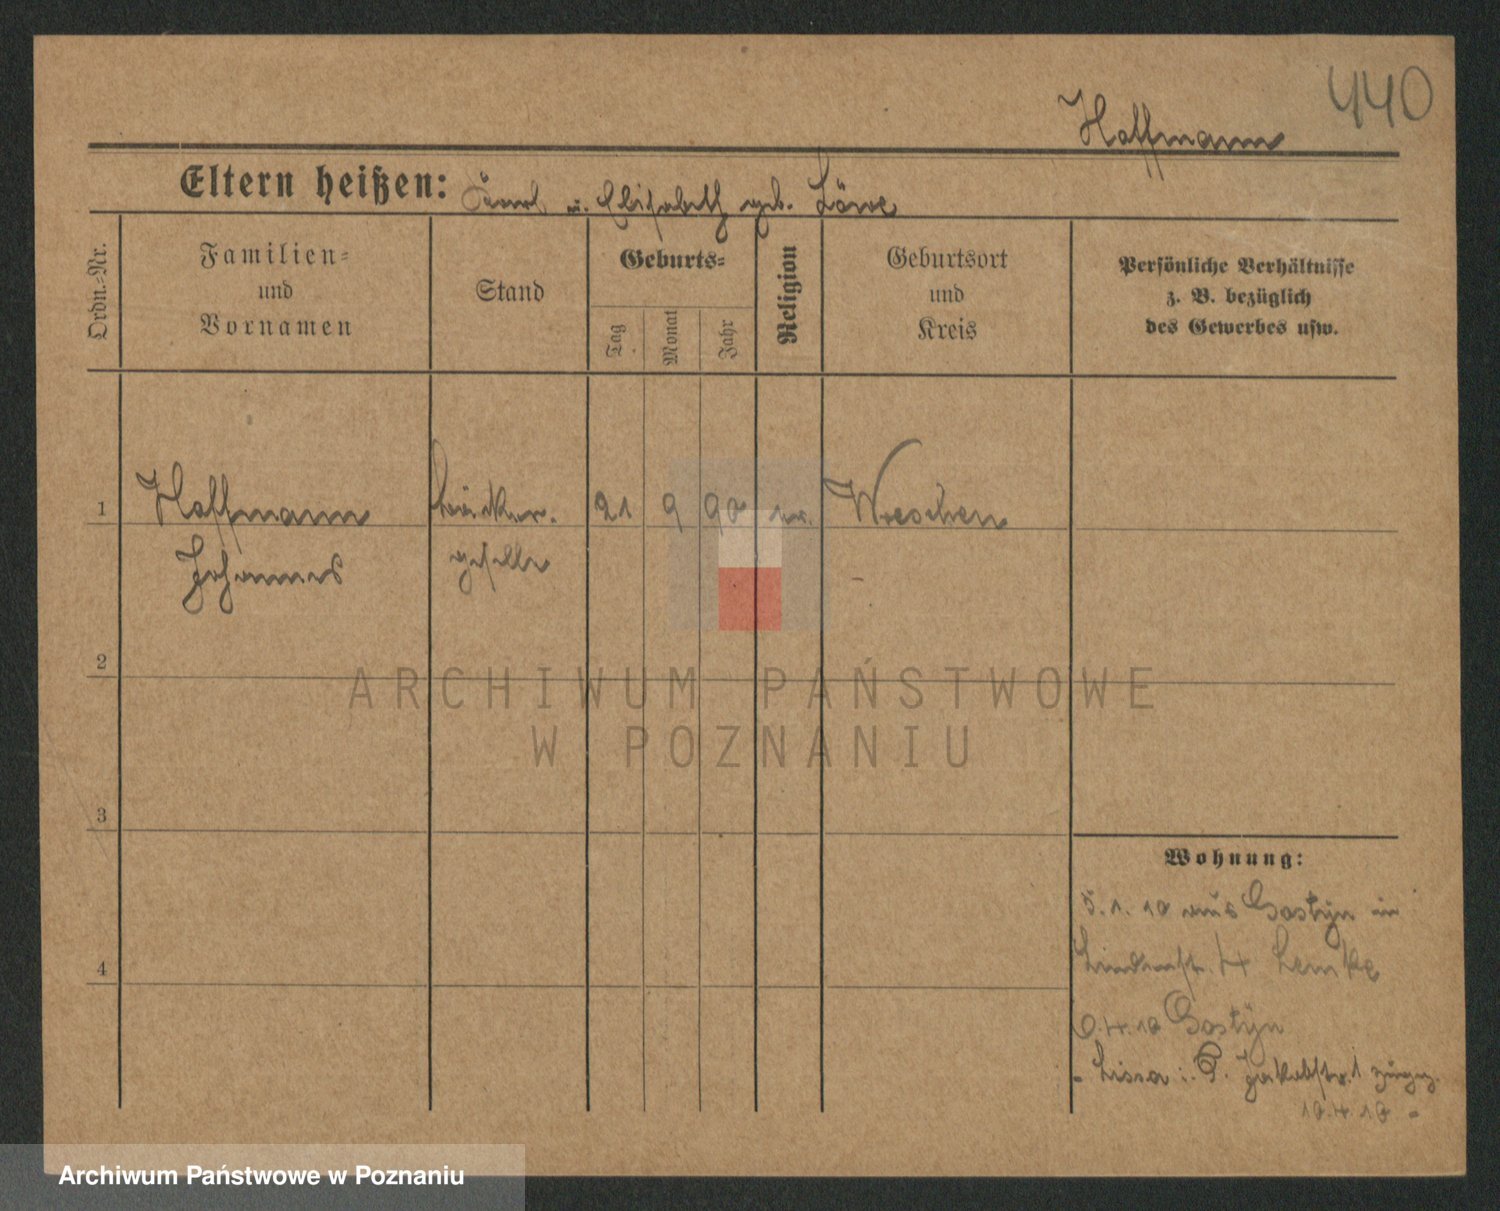 440
Hoffmann
Eltern heißen: Karl u. Elisabeth geb. Löwe
Ordn.-Nr.
Familien-
und
Vornamen
Stand
Geburts-
Tag
Monat
Jahr
Religion
Geburtsort
und
Kreis
Persönliche Verhältnisse
z. B. bezüglich
des Gewerbes usw.
1 Hoffmann Bäcker- 21 9 90 ev. Wreschen
Johannes geselle
2
ARCHIWUM PAŃSTWOWE
W POZNANIU
3
Wohnung:
5.1.10 aus Gostyn in
Lindenstr. 4 Lemke
4
6.4.10 Gostyn
- Lissa i. P. Jakobstr. 1 zugez.
10.4.10 -
Archiwum Państwowe w Poznaniu